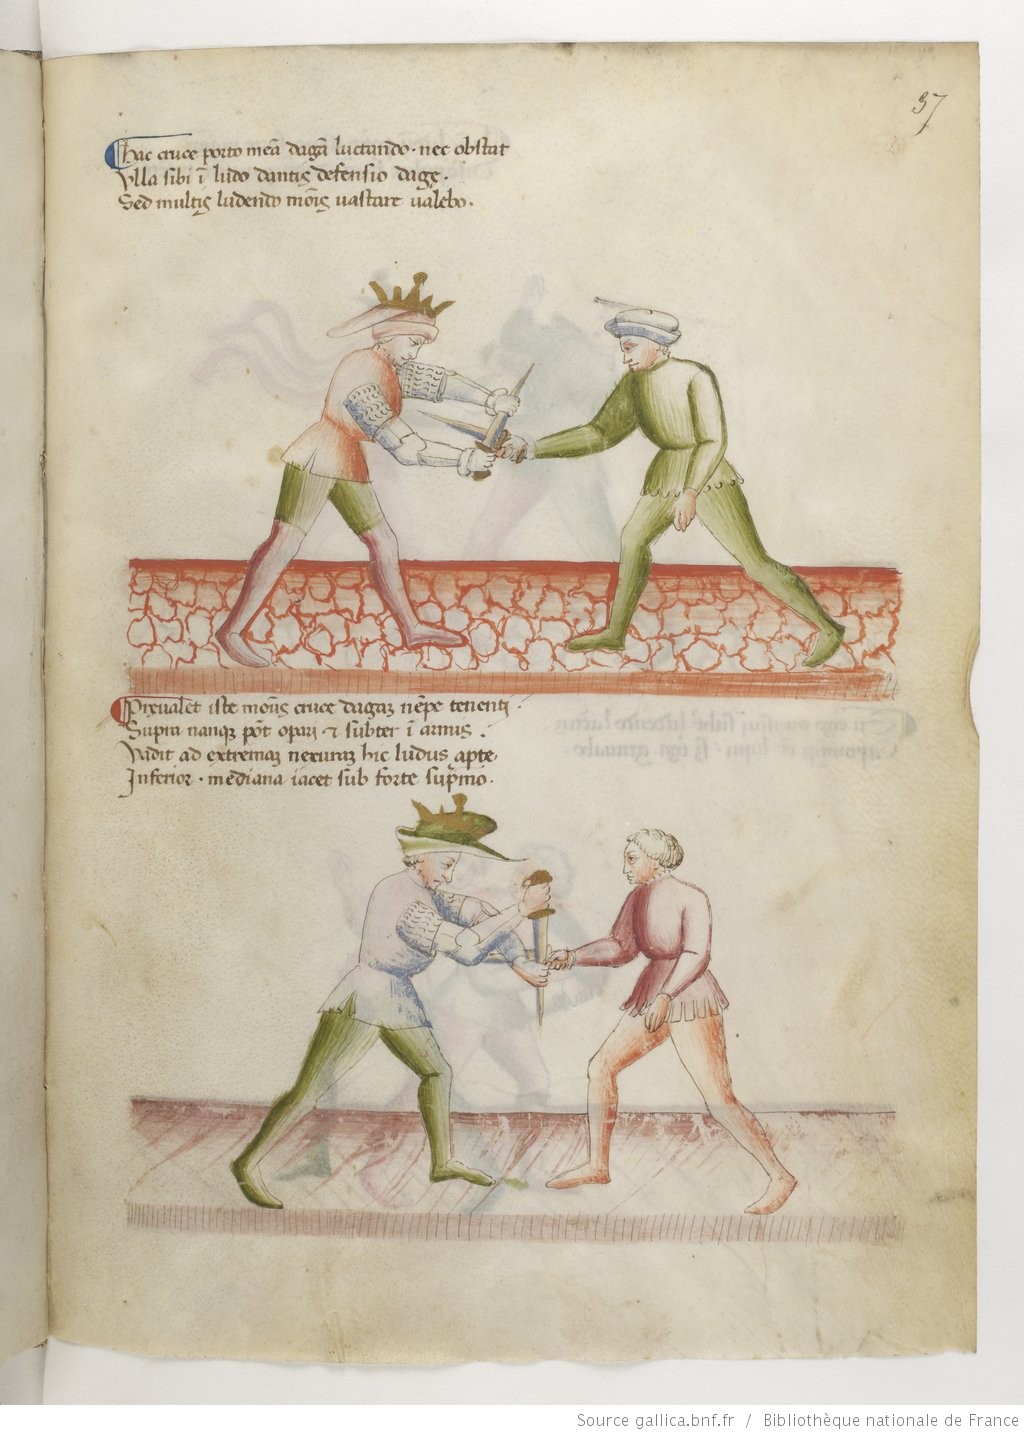 37
Hac cruce porto meā dagā luctando · nec obstat
Ulla sibi ī ludo dantis defensio dagę.
Sed multis ludendo mōis vastare valebo.
Prevalet iste moūs cruce dagaꝫ nēpe tenenti.
Supra nanqꝫ pōt opari ⁊ subter ī armis.
Vadit ad extremaꝫ nexuraꝫ hic ludus apte.
Inferior · mediana iacet sub forte sup̄mo.
Source gallica.bnf.fr / Bibliothèque nationale de France